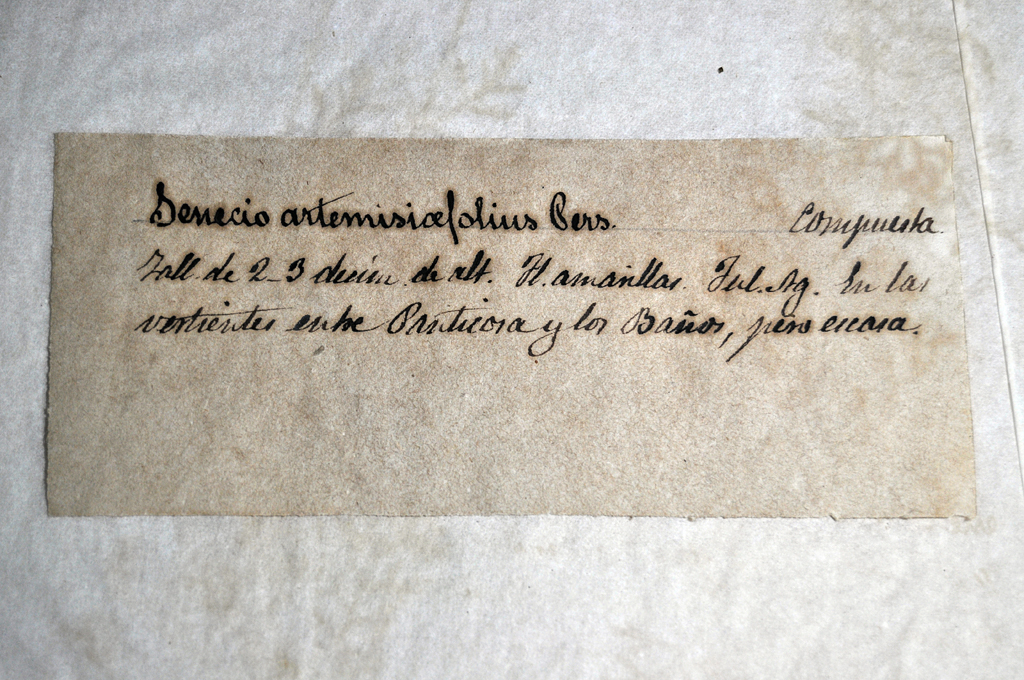 Senecio artemisiæfolius Pers. Compuesta.
Tall. de 2-3 decím. de alt. Fl. amarillas. Jul. Ag. En las
vertientes entre Panticosa y los Baños, pero escasa.